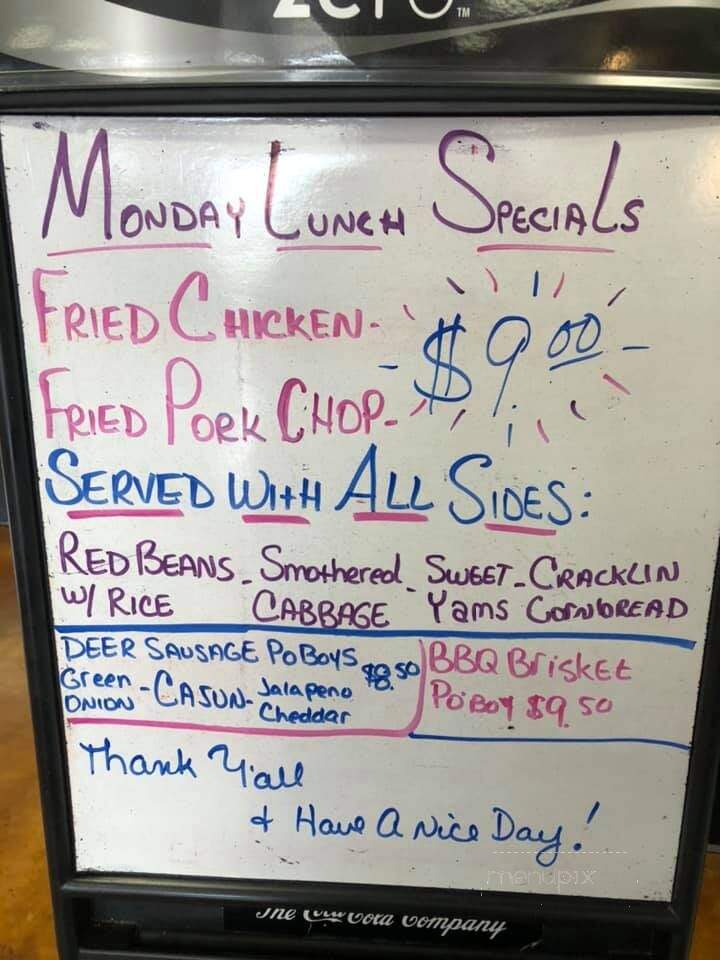 ZERO™
MONDAY LUNCH SPECIALS
FRIED CHICKEN-
FRIED PORK CHOP-
- $9.00 -
SERVED WITH ALL SIDES:
RED BEANS - Smothered - SWEET - CRACKLIN
W/ RICE CABBAGE Yams CORNBREAD
DEER SAUSAGE PoBoys $8.50
Green - CAJUN - Jalapeno
ONION Cheddar
BBQ BrisKEt
Po'Boy $9.50
Thank Y'all
+ Have A Nice Day!
menupix
The Coca-Cola Company